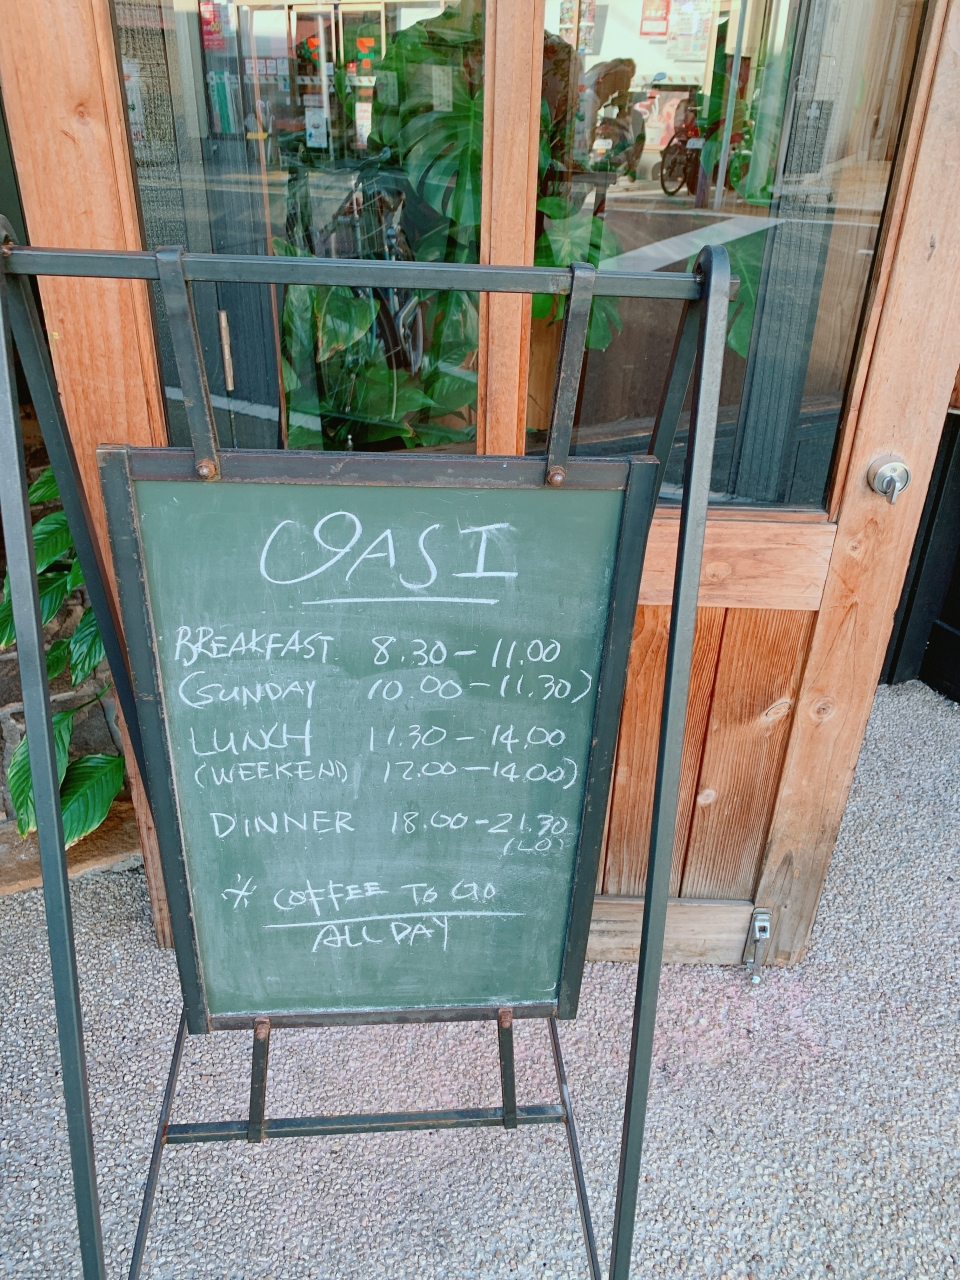 OASI
BREAKFAST 8.30 – 11.00
(SUNDAY 10.00 – 11.30)
LUNCH 11.30 – 14.00
(WEEKEND 12.00 – 14.00)
DINNER 18.00 – 21.30
(LO)
※ COFFEE TO GO
ALL DAY